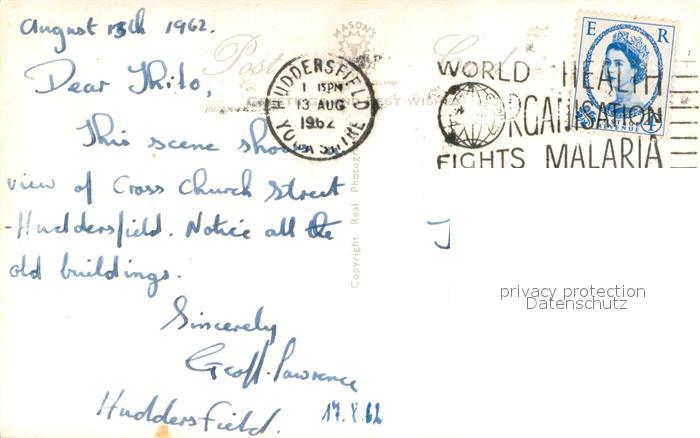 August 13th 1962.
Dear Thilo,
This scene shows a
view of Cross Church Street
-Huddersfield. Notice all the
old buildings.
Sincerely
Geoff. Lawrence
Huddersfield.
17.8.62
Post Card
MASON'S
HUDDERSFIELD
1 15PM
13 AUG
1962
YORKSHIRE
WORLD HEALTH
ORGANISATION
FIGHTS MALARIA
E R
Copyright Real Photogr
privacy protection
Datenschutz